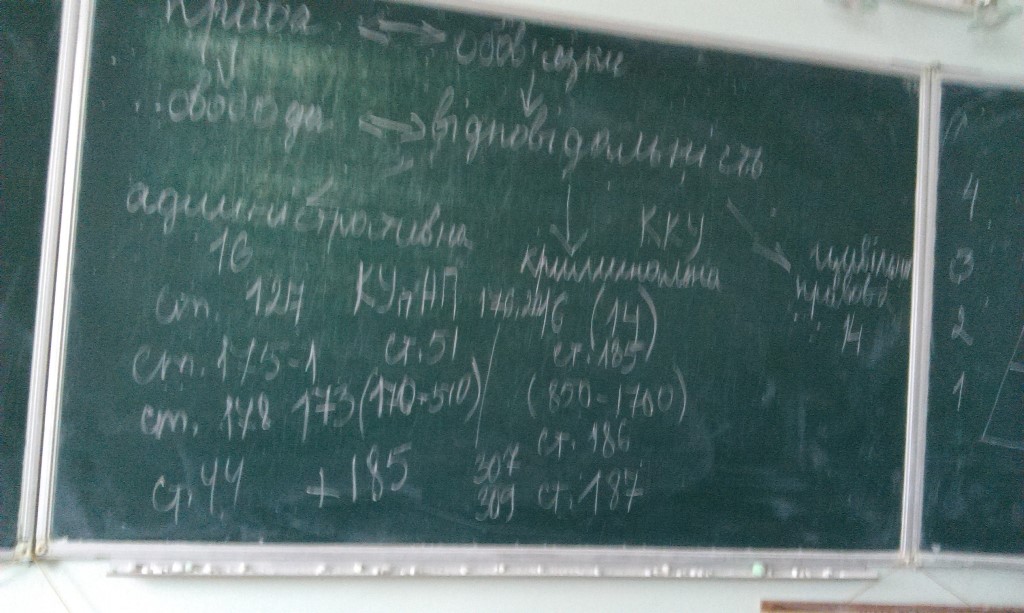 права обов'язки
свобода відповідальність
адміністративна ККУ
16 кримінальна цивільно
ст. 127 КУпАП 16 (14) правова
ст. 175-1 ст. 51 ст. 185 14
ст. 178 173 (170-510) (850-1700)
ст. 186
ст. 44 + 185 307 ст. 187
309
4
3
2
1